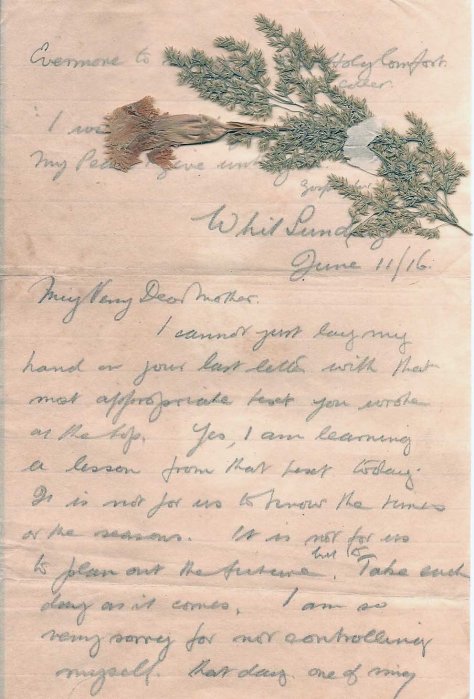 Evermore to Holy Comfort.
Coller.
"I
My Peace give unto
Whit Sunday
June 11/16.
My Very Dear Mother.
I cannot just lay my
hand on your last letter with that
most appropriate text you wrote
at the top. Yes, I am learning
a lesson from that text today.
It is not for us to know the times
or the seasons. It is not for us
to plan out the future, but to Take each
day as it comes. I am so
very sorry for not controlling
myself. That day one of my